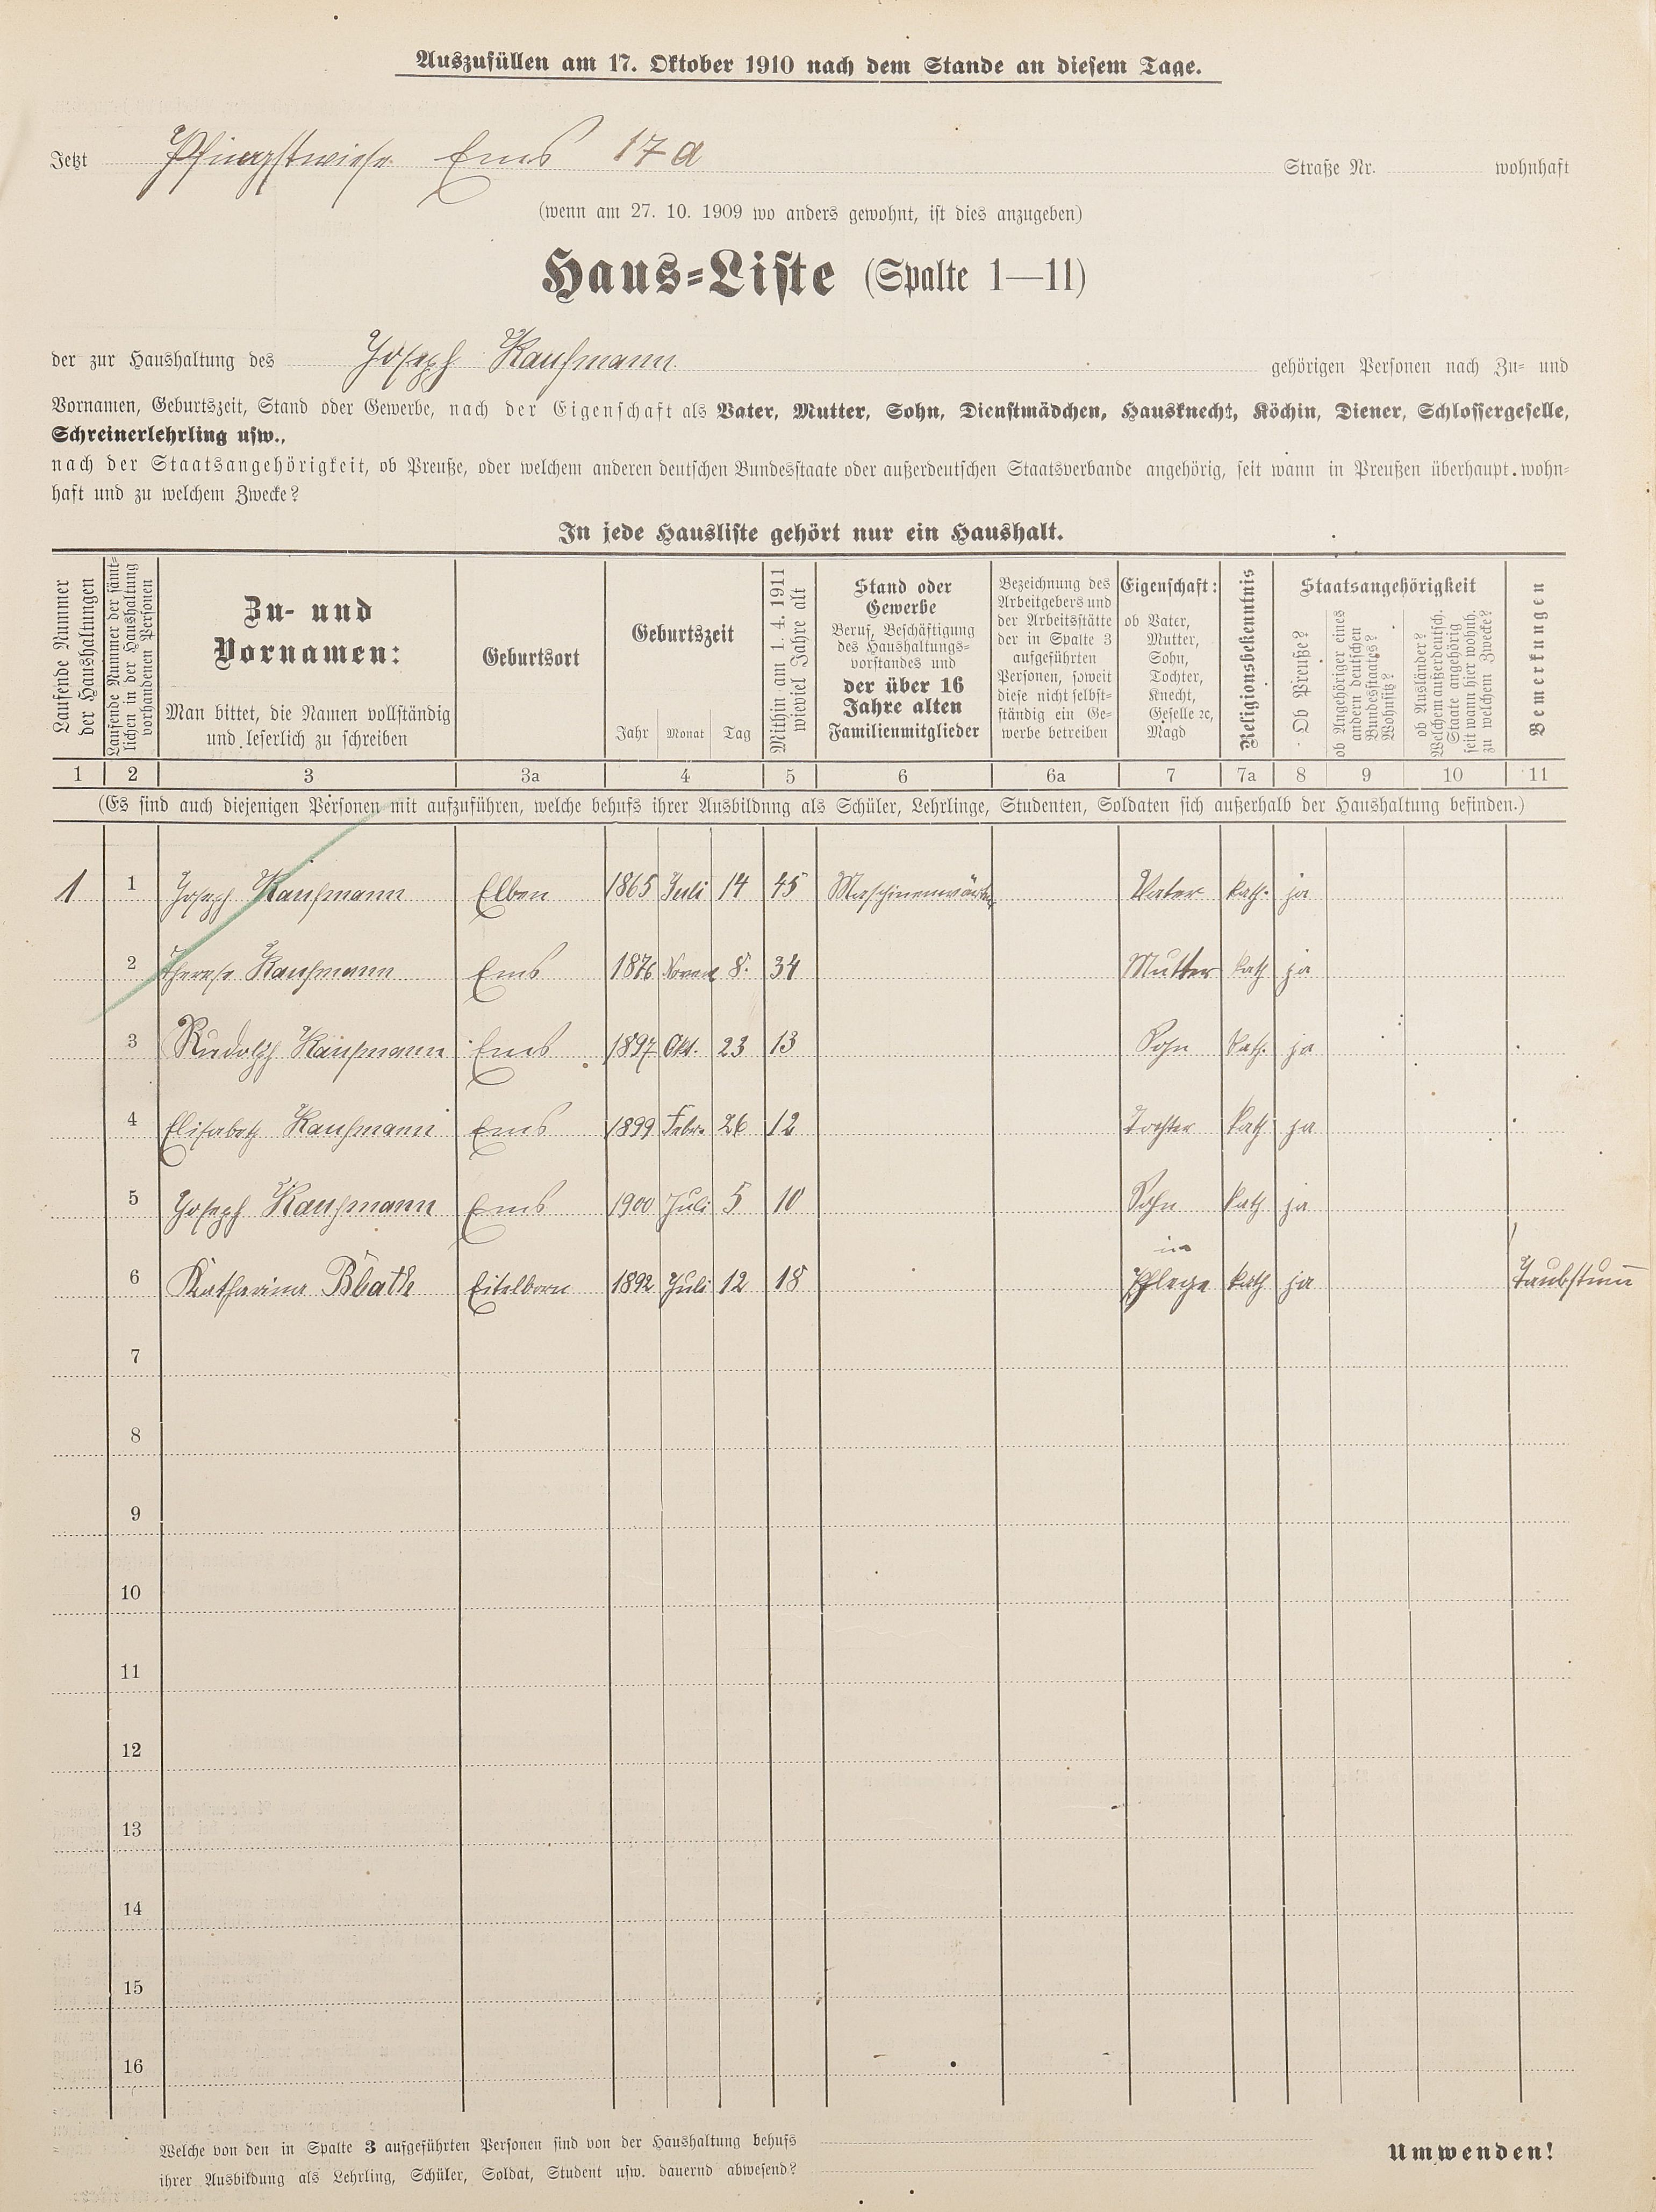 Auszufüllen am 17. Oktober 1910 nach dem Stande an diesem Tage.
Jetzt Pfingstwiese Ems 17a Straße Nr. wohnhaft
(wenn am 27. 10. 1909 wo anders gewohnt, ist dies anzugeben)
Haus-Liste (Spalte 1—11)
der zur Haushaltung des Joseph Kaufmann gehörigen Personen nach Zu- und
Vornamen, Geburtszeit, Stand oder Gewerbe, nach der Eigenschaft als Vater, Mutter, Sohn, Dienstmädchen, Hausknecht, Köchin, Diener, Schlossergeselle,
Schreinerlehrling usw.,
nach der Staatsangehörigkeit, ob Preuße, oder welchem anderen deutschen Bundesstaate oder außerdeutschen Staatsverbande angehörig, seit wann in Preußen überhaupt wohn-
haft und zu welchem Zwecke?
In jede Hausliste gehört nur ein Haushalt.
Laufende Nummer
der Haushaltungen
Laufende Nummer der sämt-
lichen in der Haushaltung
vorhandenen Personen
Zu- und
Vornamen:
Man bittet, die Namen vollständig
und leserlich zu schreiben
Geburtsort
Geburtszeit
Jahr Monat Tag
Mithin am 1. 4. 1911
wieviel Jahre alt
Stand oder
Gewerbe
Beruf, Beschäftigung
des Haushaltungs-
vorstandes und
der über 16
Jahre alten
Familienmitglieder
Bezeichnung des
Arbeitgebers und
der Arbeitsstätte
der in Spalte 3
aufgeführten
Personen, soweit
diese nicht selbst-
ständig ein Ge-
werbe betreiben
Eigenschaft:
ob Vater,
Mutter,
Sohn,
Tochter,
Knecht,
Geselle ꝛc,
Magd
Religionsbekenntnis
Staatsangehörigkeit
Ob Preuße?
ob Angehöriger eines
andern deutschen
Bundesstaates?
Wohnsitz?
ob Ausländer?
Welchem außerdeutsch.
Staate angehörig
seit wann hier wohnh.
zu welchem Zwecke?
Bemerkungen
1 2 3 3a 4 5 6 6a 7 7a 8 9 10 11
(Es sind auch diejenigen Personen mit aufzuführen, welche behufs ihrer Ausbildung als Schüler, Lehrlinge, Studenten, Soldaten sich außerhalb der Haushaltung befinden.)
1 1 Joseph Kaufmann Elben 1865 Juli 14 45 Maschinenwärter Vater kath. ja
2 Therese Kaufmann Ems 1876 8. 34 Mutter kath ja
3 Rudolph Kaufmann Ems 1897 Okt. 23 13 Sohn kath. ja
4 Elisabeth Kaufmann Ems 1899 Febr. 26 12 Tochter kath ja
5 Joseph Kaufmann Ems 1900 Juli 5 10 Sohn kath ja
in
6 Katharina Eitelborn 1892 Juli 12 18 Pflege kath ja Taubstum̄
7
8
9
10
11
12
13
14
15
16
Welche von den in Spalte 3 aufgeführten Personen sind von der Haushaltung behufs
ihrer Ausbildung als Lehrling, Schüler, Soldat, Student usw. dauernd abwesend?
Umwenden!